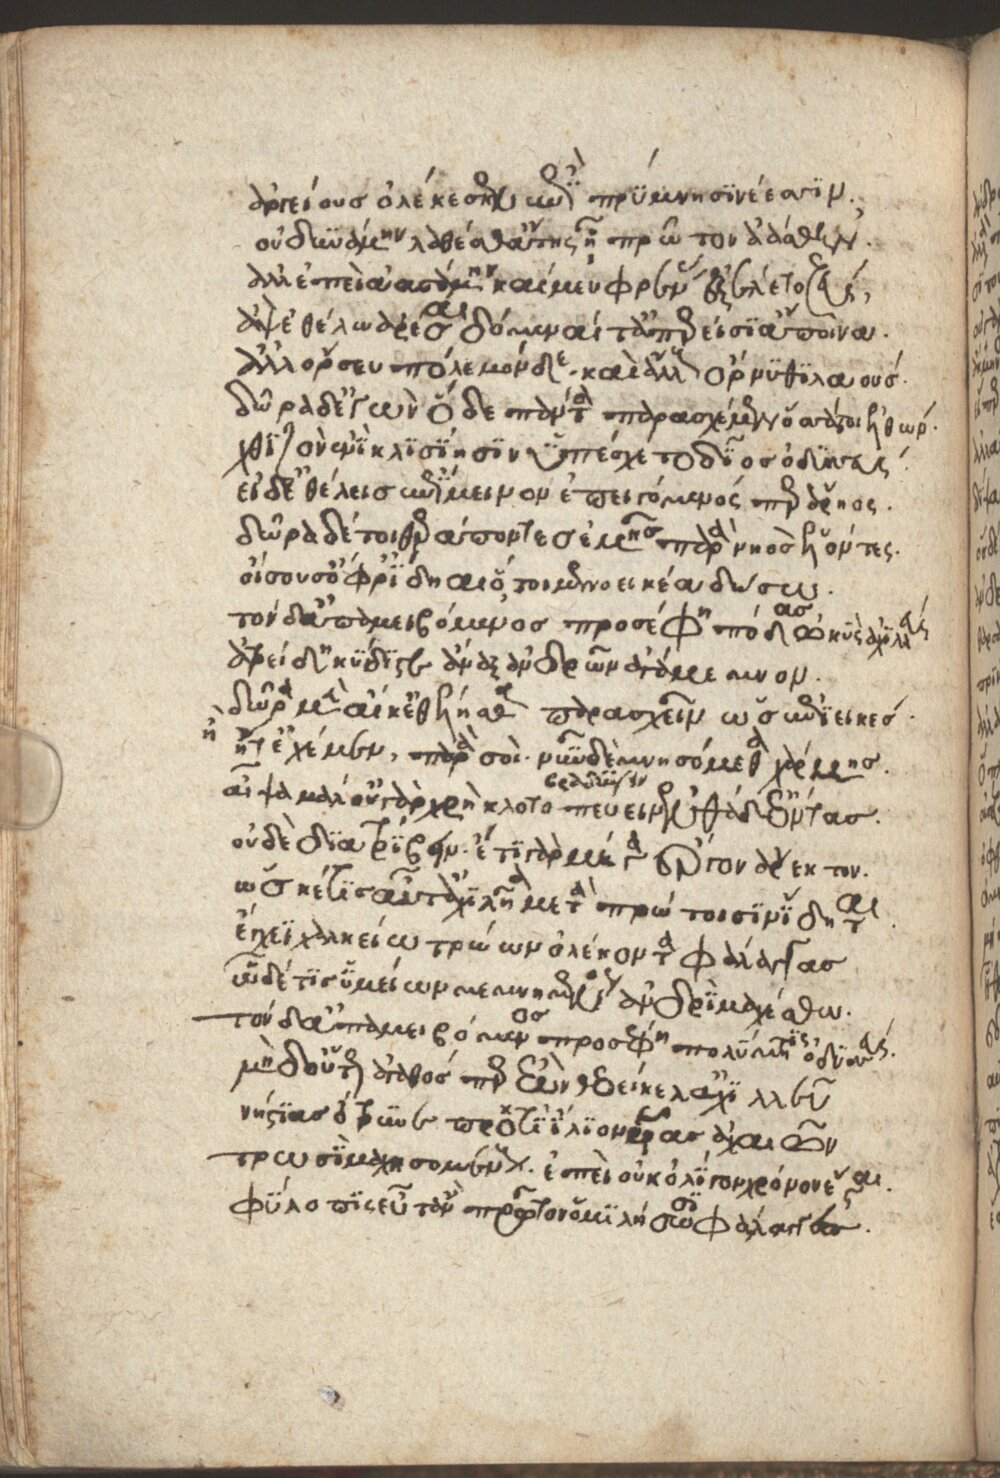 ἀργείους ὀλέκεσκεν ἐπὶ πρϋμνησϊ νέεσσϊν.
οὐ δυνάμην λαθέσθ' ἄτης ἧ πρῶτον ἀάσθην.
ἀλλ' ἐπεὶ ἀασάμην καί μευ φρένας ἐξέλετο ζεύς,
ἂψ ἐθέλω ἀρέσαι δόμεναί τ' ἀπερείσϊ' ἄποινα.
ἀλλ' ὄρσευ πόλεμόνδε. καὶ ἄλλους ὄρνϋθϊ λαούς.
δῶρα δ' ἐγὼν ὅδε πάντα παρασχέμεν ὅσσά τοι ἐλθών.
χθϊζὸν ἐνὶ κλϊσίησϊν ὑπέσχετο δῖος ὀδυσσεύς.
εἰ δ' ἐθέλεις ἐπίμεινον ἐπειγόμενός περ ἄρηος.
δῶρα δέ τοι θεράποντες ἐμῆς παρὰ νηὸς ἑλόντες.
οἴσουσ' ὄφρ' ἴδηαι ὅ τοι μενοεικέα δώσω.
τὸν δ' ἀπαμειβόμενος προσέφη πόδας ὠκὺς ἀχιλλεύς
ἀτρείδη κύδϊστε ἄναξ ἀνδρῶν ἀγάμεμνον.
δῶρα μὲν αἴ κ' ἐθέλησθα παρασχεῖν ὡς ἐπιεικές.
ἤ τ' ἐχέμεν, παρὰ σοὶ. νῦν δὲ μνησόμεθα χάρμης.
αἶψα μάλ' οὐ γὰρ χρὴ κλοτοπεύειν ἐνθάδ' ἐόντας.
οὐδὲ δϊατρίβειν. ἔτϊ γὰρ μέγα ἔργον ἄρεκτον.
ὥς κέ τις αὖτ' ἀχιλῆα μετὰ πρώτοισϊν ἴδηται.
ἔγχεϊ χαλκείω τρώων ὀλέκοντα φάλαγγας
ὧδέ τις ὑμείων μεμνημένος ἀνδρὶ μαχέσθω.
τὸν δ' ἀπαμειβόμενος προσέφη πολύμητις ὀδυσσεύς.
μὴ δ' οὕτως ἀγαθός περ ἐὼν θεοείκελ' ἀχιλλεῦ
νήστϊας ὄτρυνε προτὶ ἴλϊον υἷας ἀχαιῶν
τρωσϊ μαχησομένους. ἐπεὶ οὐκ ὀλίγον χρόνον ἔσται.
φύλοπις εὖτ' ἂν πρῶτον ὁμιλήσωσι φάλαγγες.